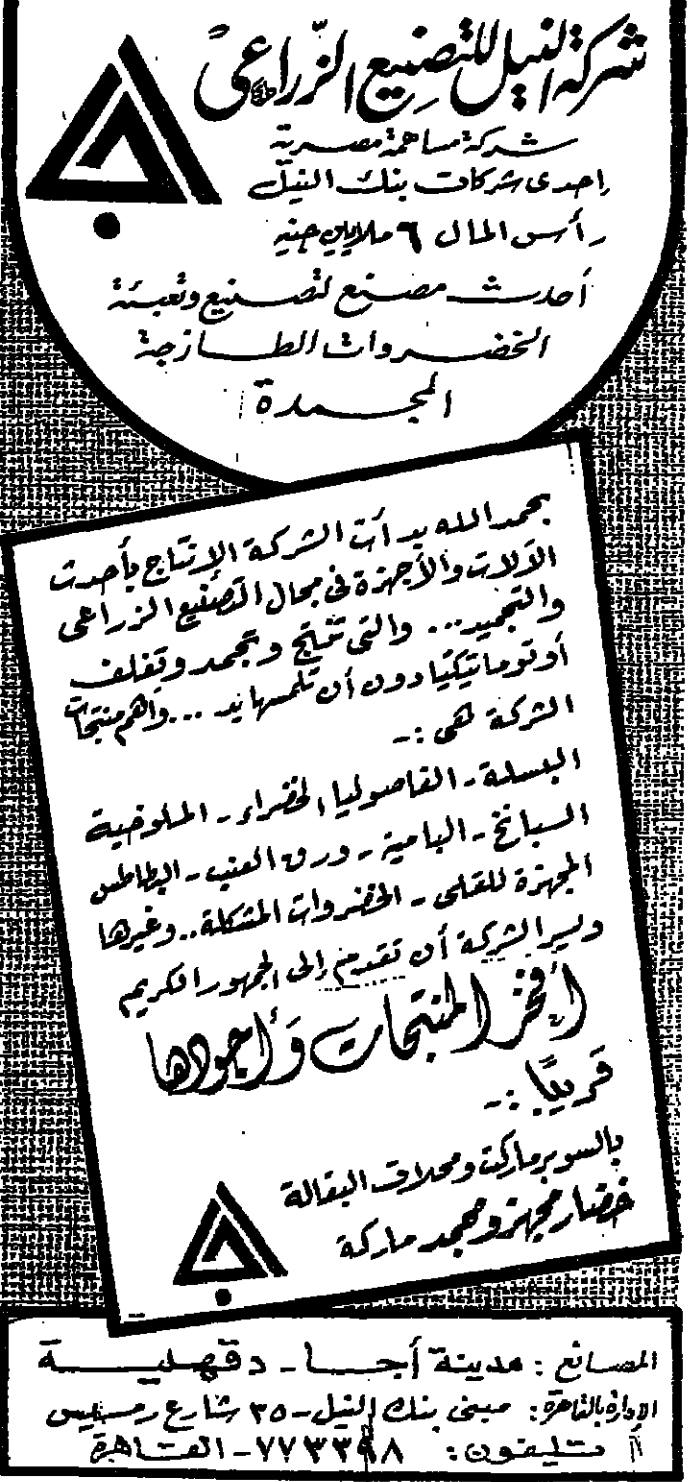 شركة النيل للتصنيع الزراعى
شركة مساهمة مصرية
إحدى شركات بنك النيل
رأس المال ٦ ملايين جنيه
أحدث مصنع لتصنيع وتعبئة
الخضروات الطازجة
المجمدة
بحمد الله بدأت الشركة الإنتاج بأحدث
الآلات والأجهزة فى مجال التصنيع الزراعى
والتجميد... والتى تثلج وتجمد وتغلف
أوتوماتيكيا دون أن تلمسها يد ... وأهم منتجات
الشركة هى :-
البسلة - الفاصوليا الخضراء - الملوخية
السبانخ - البامية - ورق العنب - البطاطس
المجهزة للقلى - الخضروات المشكلة.. وغيرها
ويسر الشركة أن تقدم إلى الجمهور الكريم
أفخر المنتجات وأجودها
قريبًا :-
بالسوبر ماركت ومحلات البقالة
خضار مجهز ومجمد ماركة
المصانع : مدينة أجا - دقهلية
الإدارة بالقاهرة : مبنى بنك النيل - ٣٥ شارع رمسيس
تليفون : ٧٧٣٣٩٨ - القاهرة